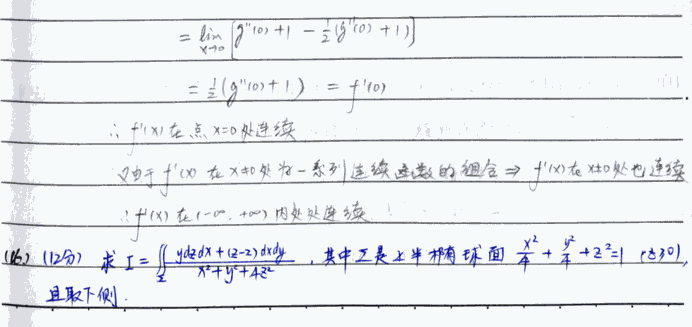 = lim_{x→0} [g''(0)+1 - 1/2(g''(0)+1)]
= 1/2(g''(0)+1) = f'(0)
∴ f'(x) 在点 x=0 处连续
又由于 f'(x) 在 x≠0 处为一系列连续函数的组合 ⇒ f'(x) 在 x≠0 处也连续
∴ f'(x) 在 (-∞, +∞) 内处处连续
(12分) 求 I = ∬_Σ (ydzdx + (z-2)dxdy)/(x²+y²+4z²) , 其中 Σ 是上半椭球面 x²/4 + y²/4 + z² = 1 (z≥0),
且取下侧.